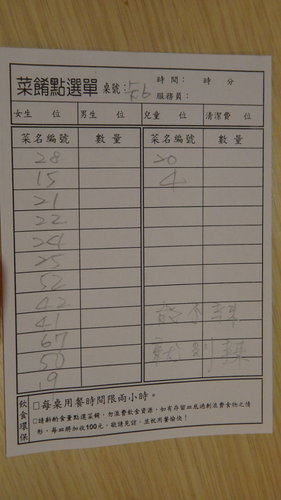 菜餚點選單 桌號:56 時間: 時 分
服務員:
女生 位 男生 位 兒童 位 清潔費 位
菜名編號 數量 菜名編號 數量
28 20
15 4
21
22
24
25
52
42
41 能不辣
67 就別辣
50
19
飲食環保
□每桌用餐時間限兩小時。
□請斟酌食量點選菜餚,勿浪費飲食資源,如有存留四馬過剩浪費食物之情
形,每四將加收100元,敬請見諒,並祝用餐愉快!